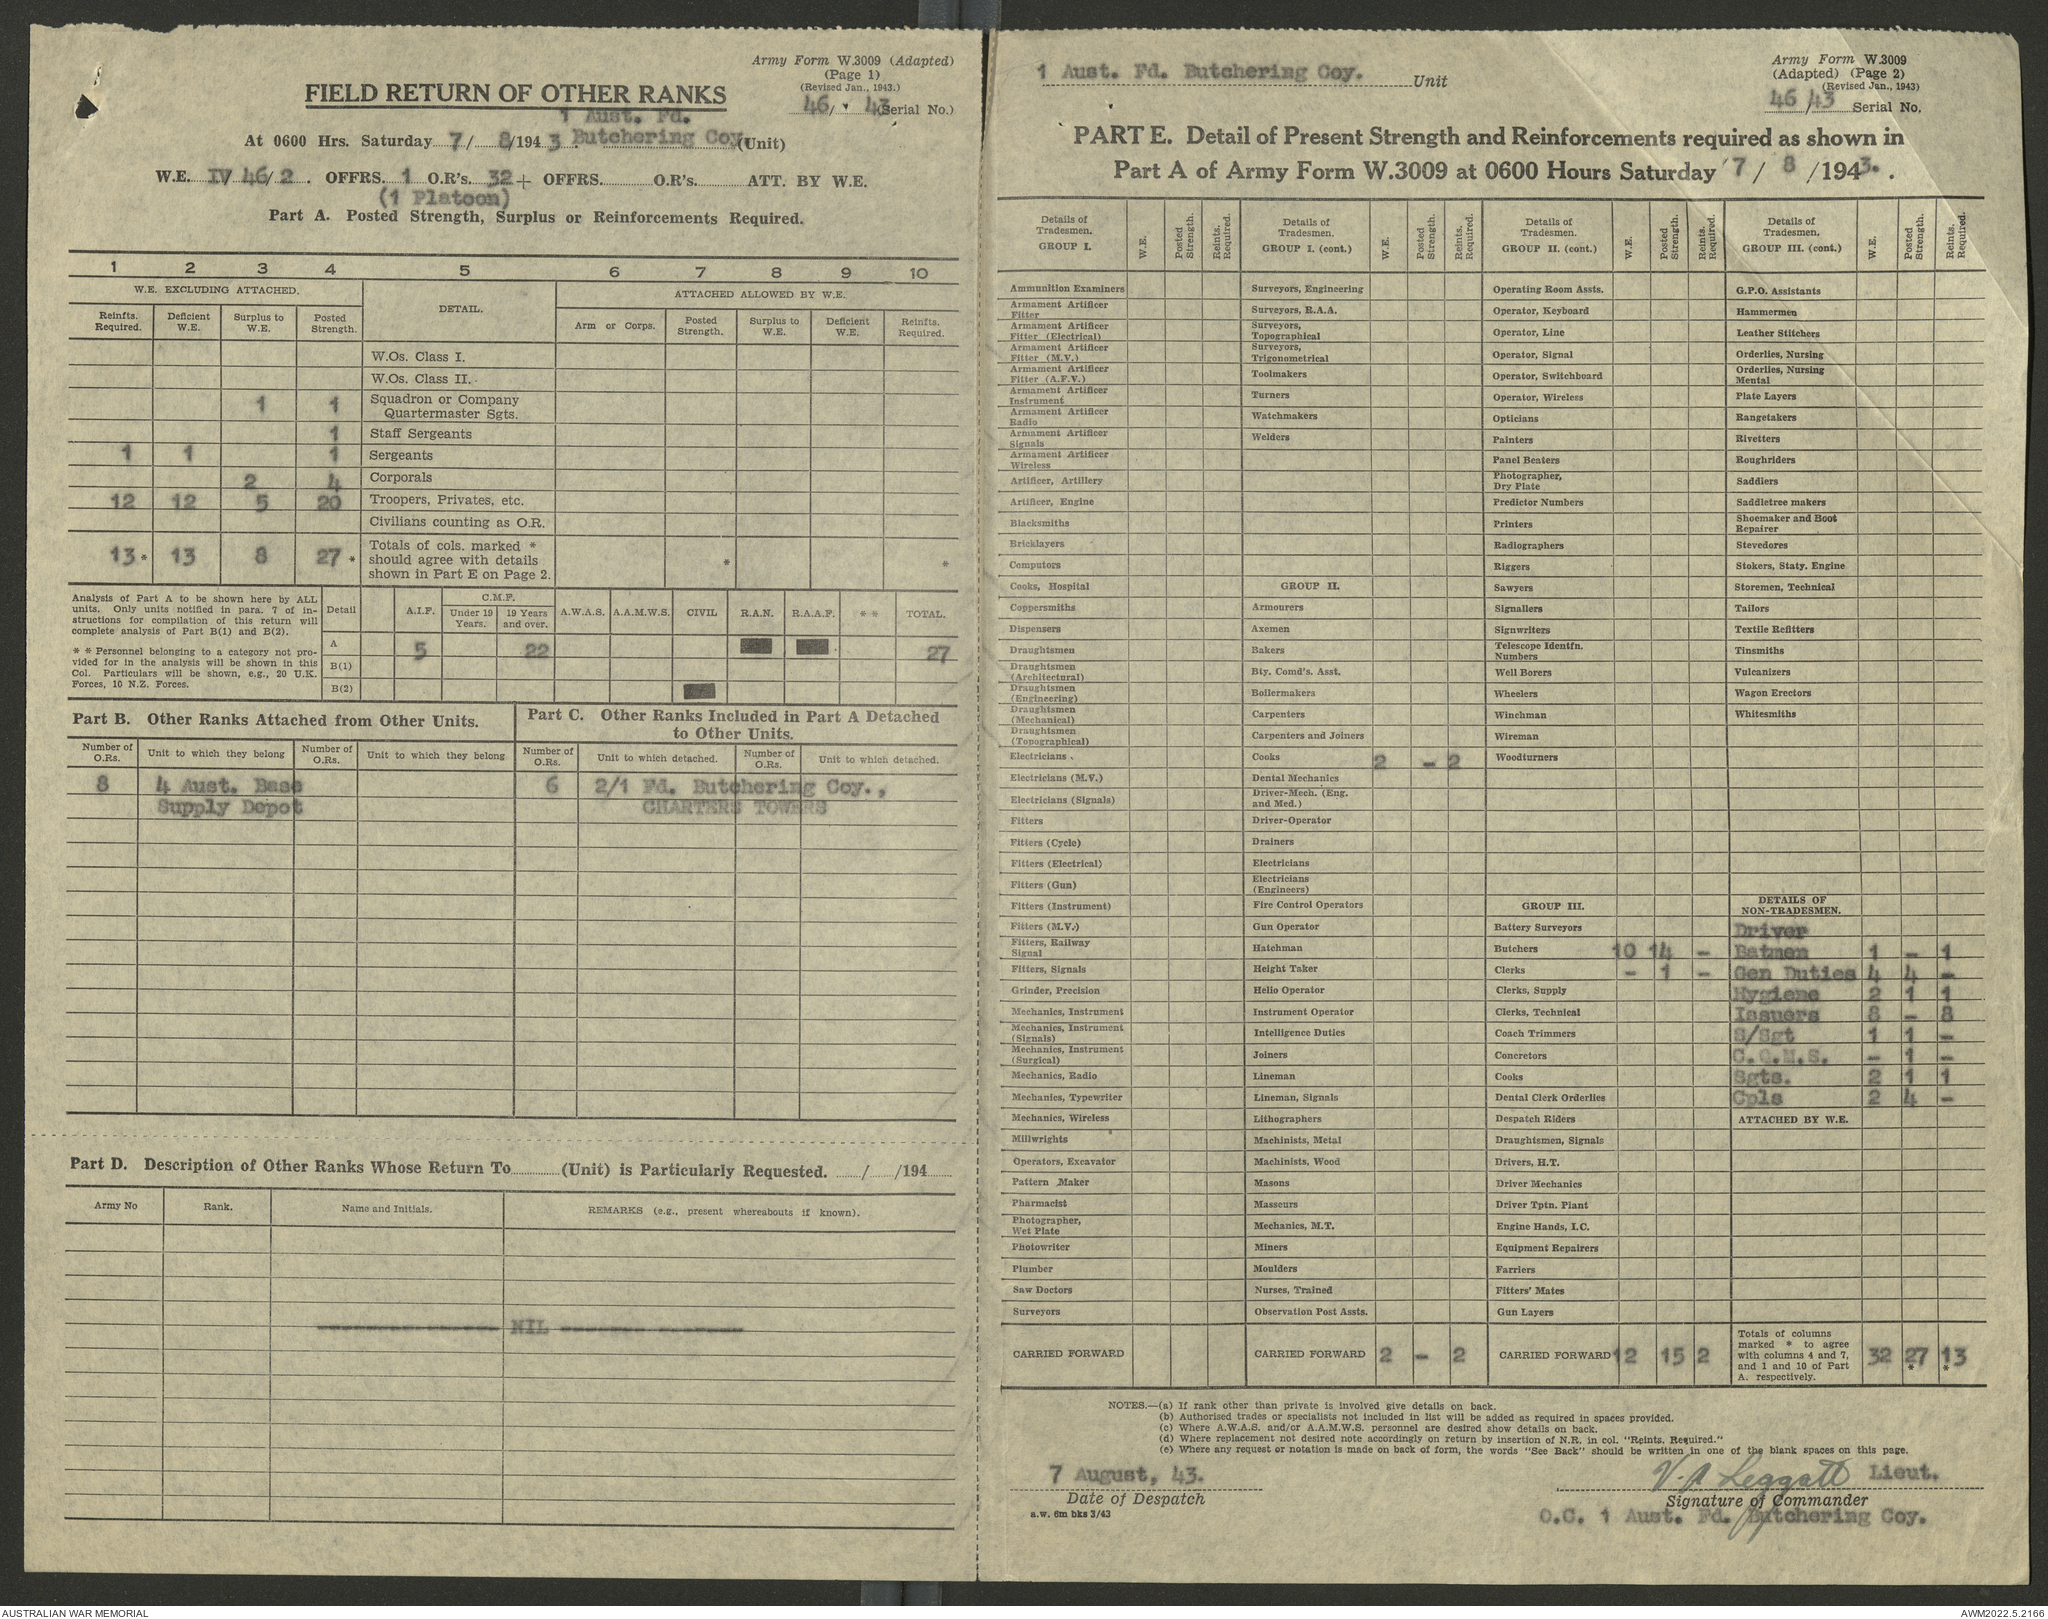 Army Form W.3009 (Adapted)
(Page 1)
(Revised Jan., 1943.)
FIELD RETURN OF OTHER RANKS
46/ 43 (Serial No.)
1 Aust. Fd.
At 0600 Hrs. Saturday 7/ 8/1943. Butchering Coy. (Unit)
W.E. IV 46/2 . OFFRS. 1 O.R's. 32 + OFFRS. O.R's. ATT. BY W.E.
(1 Platoon)
Part A. Posted Strength, Surplus or Reinforcements Required.
1 2 3 4 5 6 7 8 9 10
W.E. EXCLUDING ATTACHED. DETAIL. ATTACHED ALLOWED BY W.E.
Reinfts. Required. Deficient W.E. Surplus to W.E. Posted Strength. Arm or Corps. Posted Strength. Surplus to W.E. Deficient W.E. Reinfts. Required.
W.Os. Class I.
W.Os. Class II.
1 1 Squadron or Company Quartermaster Sgts.
1 Staff Sergeants
1 1 1 Sergeants
2 4 Corporals
12 12 5 20 Troopers, Privates, etc.
Civilians counting as O.R.
13 * 13 8 27 * Totals of cols. marked * should agree with details shown in Part E on Page 2. * *
Analysis of Part A to be shown here by ALL units. Only units notified in para. 7 of instructions for compilation of this return will complete analysis of Part B(1) and B(2).
* * Personnel belonging to a category not provided for in the analysis will be shown in this Col. Particulars will be shown, e.g., 20 U.K. Forces, 10 N.Z. Forces.
Detail A.I.F. C.M.F. Under 19 Years. 19 Years and over. A.W.A.S. A.A.M.W.S. CIVIL R.A.N. R.A.A.F. * * TOTAL.
A 5 22 27
B(1)
B(2)
Part B. Other Ranks Attached from Other Units.
Part C. Other Ranks Included in Part A Detached to Other Units.
Number of O.Rs. Unit to which they belong Number of O.Rs. Unit to which they belong Number of O.Rs. Unit to which detached. Number of O.Rs. Unit to which detached.
8 4 Aust. Base 6 2/1 Fd. Butchering Coy.,
Supply Depot CHARTERS TOWERS
Part D. Description of Other Ranks Whose Return To (Unit) is Particularly Requested. / /194
Army No Rank. Name and Initials. REMARKS (e.g., present whereabouts if known).
NIL
1 Aust. Fd. Butchering Coy. Unit
Army Form W.3009
(Adapted) (Page 2)
(Revised Jan., 1943)
46/43 Serial No.
PART E. Detail of Present Strength and Reinforcements required as shown in
Part A of Army Form W.3009 at 0600 Hours Saturday 7/ 8 /1943. .
Details of Tradesmen. GROUP I. W.E. Posted Strength. Reints. Required.
Ammunition Examiners
Armament Artificer Fitter
Armament Artificer Fitter (Electrical)
Armament Artificer Fitter (M.V.)
Armament Artificer Fitter (A.F.V.)
Armament Artificer Instrument
Armament Artificer Radio
Armament Artificer Signals
Armament Artificer Wireless
Artificer, Artillery
Artificer, Engine
Blacksmiths
Bricklayers
Computors
Cooks, Hospital
Coppersmiths
Dispensers
Draughtsmen
Draughtsmen (Architectural)
Draughtsmen (Engineering)
Draughtsmen (Mechanical)
Draughtsmen (Topographical)
Electricians
Electricians (M.V.)
Electricians (Signals)
Fitters
Fitters (Cycle)
Fitters (Electrical)
Fitters (Gun)
Fitters (Instrument)
Fitters (M.V.)
Fitters, Railway Signal
Fitters, Signals
Grinder, Precision
Mechanics, Instrument
Mechanics, Instrument (Signals)
Mechanics, Instrument (Surgical)
Mechanics, Radio
Mechanics, Typewriter
Mechanics, Wireless
Millwrights
Operators, Excavator
Pattern Maker
Pharmacist
Photographer, Wet Plate
Photowriter
Plumber
Saw Doctors
Surveyors
CARRIED FORWARD
Details of Tradesmen. GROUP I. (cont.) W.E. Posted Strength. Reints. Required.
Surveyors, Engineering
Surveyors, R.A.A.
Surveyors, Topographical
Surveyors, Trigonometrical
Toolmakers
Turners
Watchmakers
Welders
GROUP II.
Armourers
Axemen
Bakers
Bty. Comd's. Asst.
Boilermakers
Carpenters
Carpenters and Joiners
Cooks 2 - 2
Dental Mechanics
Driver-Mech. (Eng. and Med.)
Driver-Operator
Drainers
Electricians
Electricians (Engineers)
Fire Control Operators
Gun Operator
Hatchman
Height Taker
Helio Operator
Instrument Operator
Intelligence Duties
Joiners
Lineman
Lineman, Signals
Lithographers
Machinists, Metal
Machinists, Wood
Masons
Masseurs
Mechanics, M.T.
Miners
Moulders
Nurses, Trained
Observation Post Assts.
CARRIED FORWARD 2 - 2
Details of Tradesmen. GROUP II. (cont.) W.E. Posted Strength. Reints. Required.
Operating Room Assts.
Operator, Keyboard
Operator, Line
Operator, Signal
Operator, Switchboard
Operator, Wireless
Opticians
Painters
Panel Beaters
Photographer, Dry Plate
Predictor Numbers
Printers
Radiographers
Riggers
Sawyers
Signallers
Signwriters
Telescope Identfn. Numbers
Well Borers
Wheelers
Winchman
Wireman
Woodturners
GROUP III.
Battery Surveyors
Butchers 10 14 -
Clerks - 1 -
Clerks, Supply
Clerks, Technical
Coach Trimmers
Concretors
Cooks
Dental Clerk Orderlies
Despatch Riders
Draughtsmen, Signals
Drivers, H.T.
Driver Mechanics
Driver Tptn. Plant
Engine Hands, I.C.
Equipment Repairers
Farriers
Fitters' Mates
Gun Layers
CARRIED FORWARD 12 15 2
Details of Tradesmen. GROUP III. (cont.) W.E. Posted Strength. Reints. Required.
G.P.O. Assistants
Hammermen
Leather Stitchers
Orderlies, Nursing
Orderlies, Nursing Mental
Plate Layers
Rangetakers
Rivetters
Roughriders
Saddiers
Saddletree makers
Shoemaker and Boot Repairer
Stevedores
Stokers, Staty. Engine
Storemen, Technical
Tailors
Textile Refitters
Tinsmiths
Vulcanizers
Wagon Erectors
Whitesmiths
DETAILS OF NON-TRADESMEN.
Driver
Batmen 1 - 1
Gen Duties 4 4 -
Hygiene 2 1 1
Issuers 8 - 8
S/Sgt 1 1 -
C.Q.M.S. - 1 -
Sgts. 2 1 1
Cpls 2 4 -
ATTACHED BY W.E.
Totals of columns marked * to agree with columns 4 and 7, and 1 and 10 of Part A. respectively. 32 27 * 13 *
NOTES.—(a) If rank other than private is involved give details on back.
(b) Authorised trades or specialists not included in list will be added as required in spaces provided.
(c) Where A.W.A.S. and/or A.A.M.W.S. personnel are desired show details on back.
(d) Where replacement not desired note accordingly on return by insertion of N.R. in col. "Reints. Required."
(e) Where any request or notation is made on back of form, the words "See Back" should be written in one of the blank spaces on this page.
7 August, 43.
Date of Despatch
a.w. 6m bks 3/43
V. A Leggatt Lieut.
Signature of Commander
O.C. 1 Aust. Fd. Butchering Coy.
AUSTRALIAN WAR MEMORIAL
AWM2022.5.2166